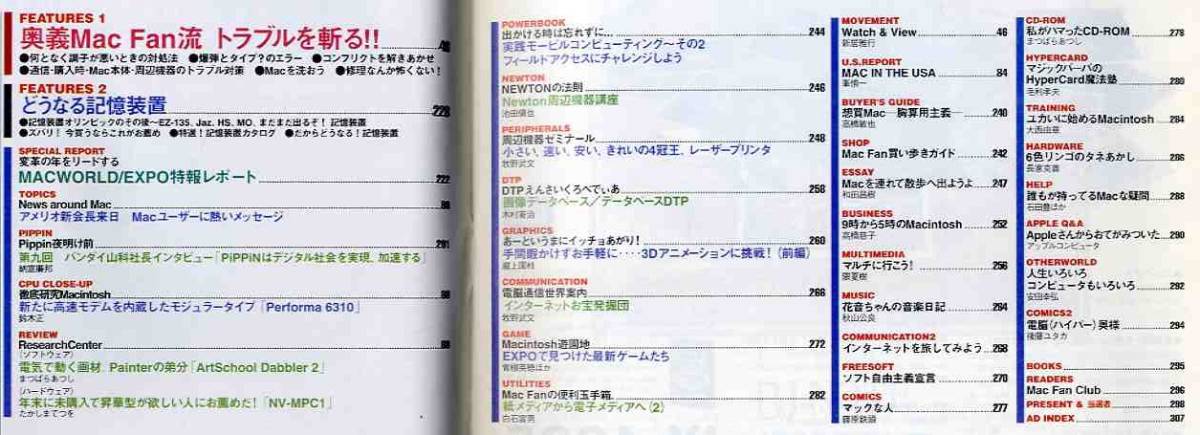 FEATURES 1
奥義Mac Fan流 トラブルを斬る!!
●何となく調子が悪いときの対処法 ●爆弾とタイプ?のエラー ●コンフリクトを解きあかせ
●通信・購入時・Mac本体・周辺機器のトラブル対策 ●Macを洗おう ●修理なんか怖くない!
FEATURES 2
どうなる記憶装置 228
●記憶装置オリンピックのその後〜EZ-135, Jaz, HS, MO, まだまだ出るぞ! 記憶装置
●ズバリ! 今買うならこれがお薦め ●特選!記憶装置カタログ ●だからどうなる!記憶装置
SPECIAL REPORT
変革の年をリードする
MACWORLD/EXPO特報レポート 222
TOPICS
News around Mac
アメリオ新会長来日 Macユーザーに熱いメッセージ
PIPPIN
Pippin夜明け前 291
第九回 バンダイ山科社長インタビュー「PiPPiNはデジタル社会を実現、加速する」
CPU CLOSE-UP
徹底研究Macintosh
新たに高速モデムを内蔵したモジュラータイプ「Performa 6310」
鈴木正
REVIEW
ResearchCenter
(ソフトウェア)
電気で動く画材、Painterの弟分「ArtSchool Dabbler 2」
まつばらあつし
(ハードウェア)
年末に未購入で昇華型が欲しい人にお薦めだ!「NV-MPC1」
たかしまてつを
POWERBOOK
出かける時は忘れずに… 244
実践モービルコンピューティング〜その2
フィールドアクセスにチャレンジしよう
NEWTON
NEWTONの法則 246
Newton周辺機器講座
池田慎也
PERIPHERALS
周辺機器ゼミナール 248
小さい、速い、安い、きれいの4冠王、レーザープリンタ
牧野武文
DTP
DTPえんさいくろぺでぃあ 258
画像データベース/データベースDTP
GRAPHICS
あーというまにイッチョあがり! 260
手間暇かけずお手軽に‥‥3Dアニメーションに挑戦!(前編)
COMMUNICATION
電脳通信世界案内 266
インターネットお宝発掘団
牧野武文
GAME
Macintosh遊園地 272
EXPOで見つけた最新ゲームたち
UTILITIES
Mac Fanの便利玉手箱 282
紙メディアから電子メディアへ(2)
MOVEMENT
Watch & View 46
新居雅行
U.S.REPORT
MAC IN THE USA 84
BUYER'S GUIDE
想買Mac―胸算用主義― 240
高橋敏也
SHOP
Mac Fan買い歩きガイド 242
ESSAY
Macを連れて散歩へ出ようよ 247
和田昌樹
BUSINESS
9時から5時のMacintosh 252
MULTIMEDIA
マルチに行こう! 256
MUSIC
花音ちゃんの音楽日記 264
秋山公良
COMMUNICATION2
インターネットを旅してみよう 268
FREESOFT
ソフト自由主義宣言 270
COMICS
マックな人 277
藤原鉄頭
CD-ROM
私がハマったCD-ROM 278
まつばらあつし
HYPERCARD
マジックパーパの
HyperCard魔法塾 280
毛利孝夫
TRAINING
ユカいに始めるMacintosh 284
大西由意
HARDWARE
6色リンゴのタネあかし 286
HELP
誰もが持ってるMacな疑問 288
石田豊ほか
APPLE Q&A
Appleさんからおてがみついた 290
アップルコンピュータ
OTHERWORLD
人生いろいろ
コンピュータもいろいろ 292
安田幸弘
COMICS2
電脳(ハイパー)奥様 294
後藤ユタカ
BOOKS 295
READERS
Mac Fan Club 296
PRESENT & 当選者 298
AD INDEX 307